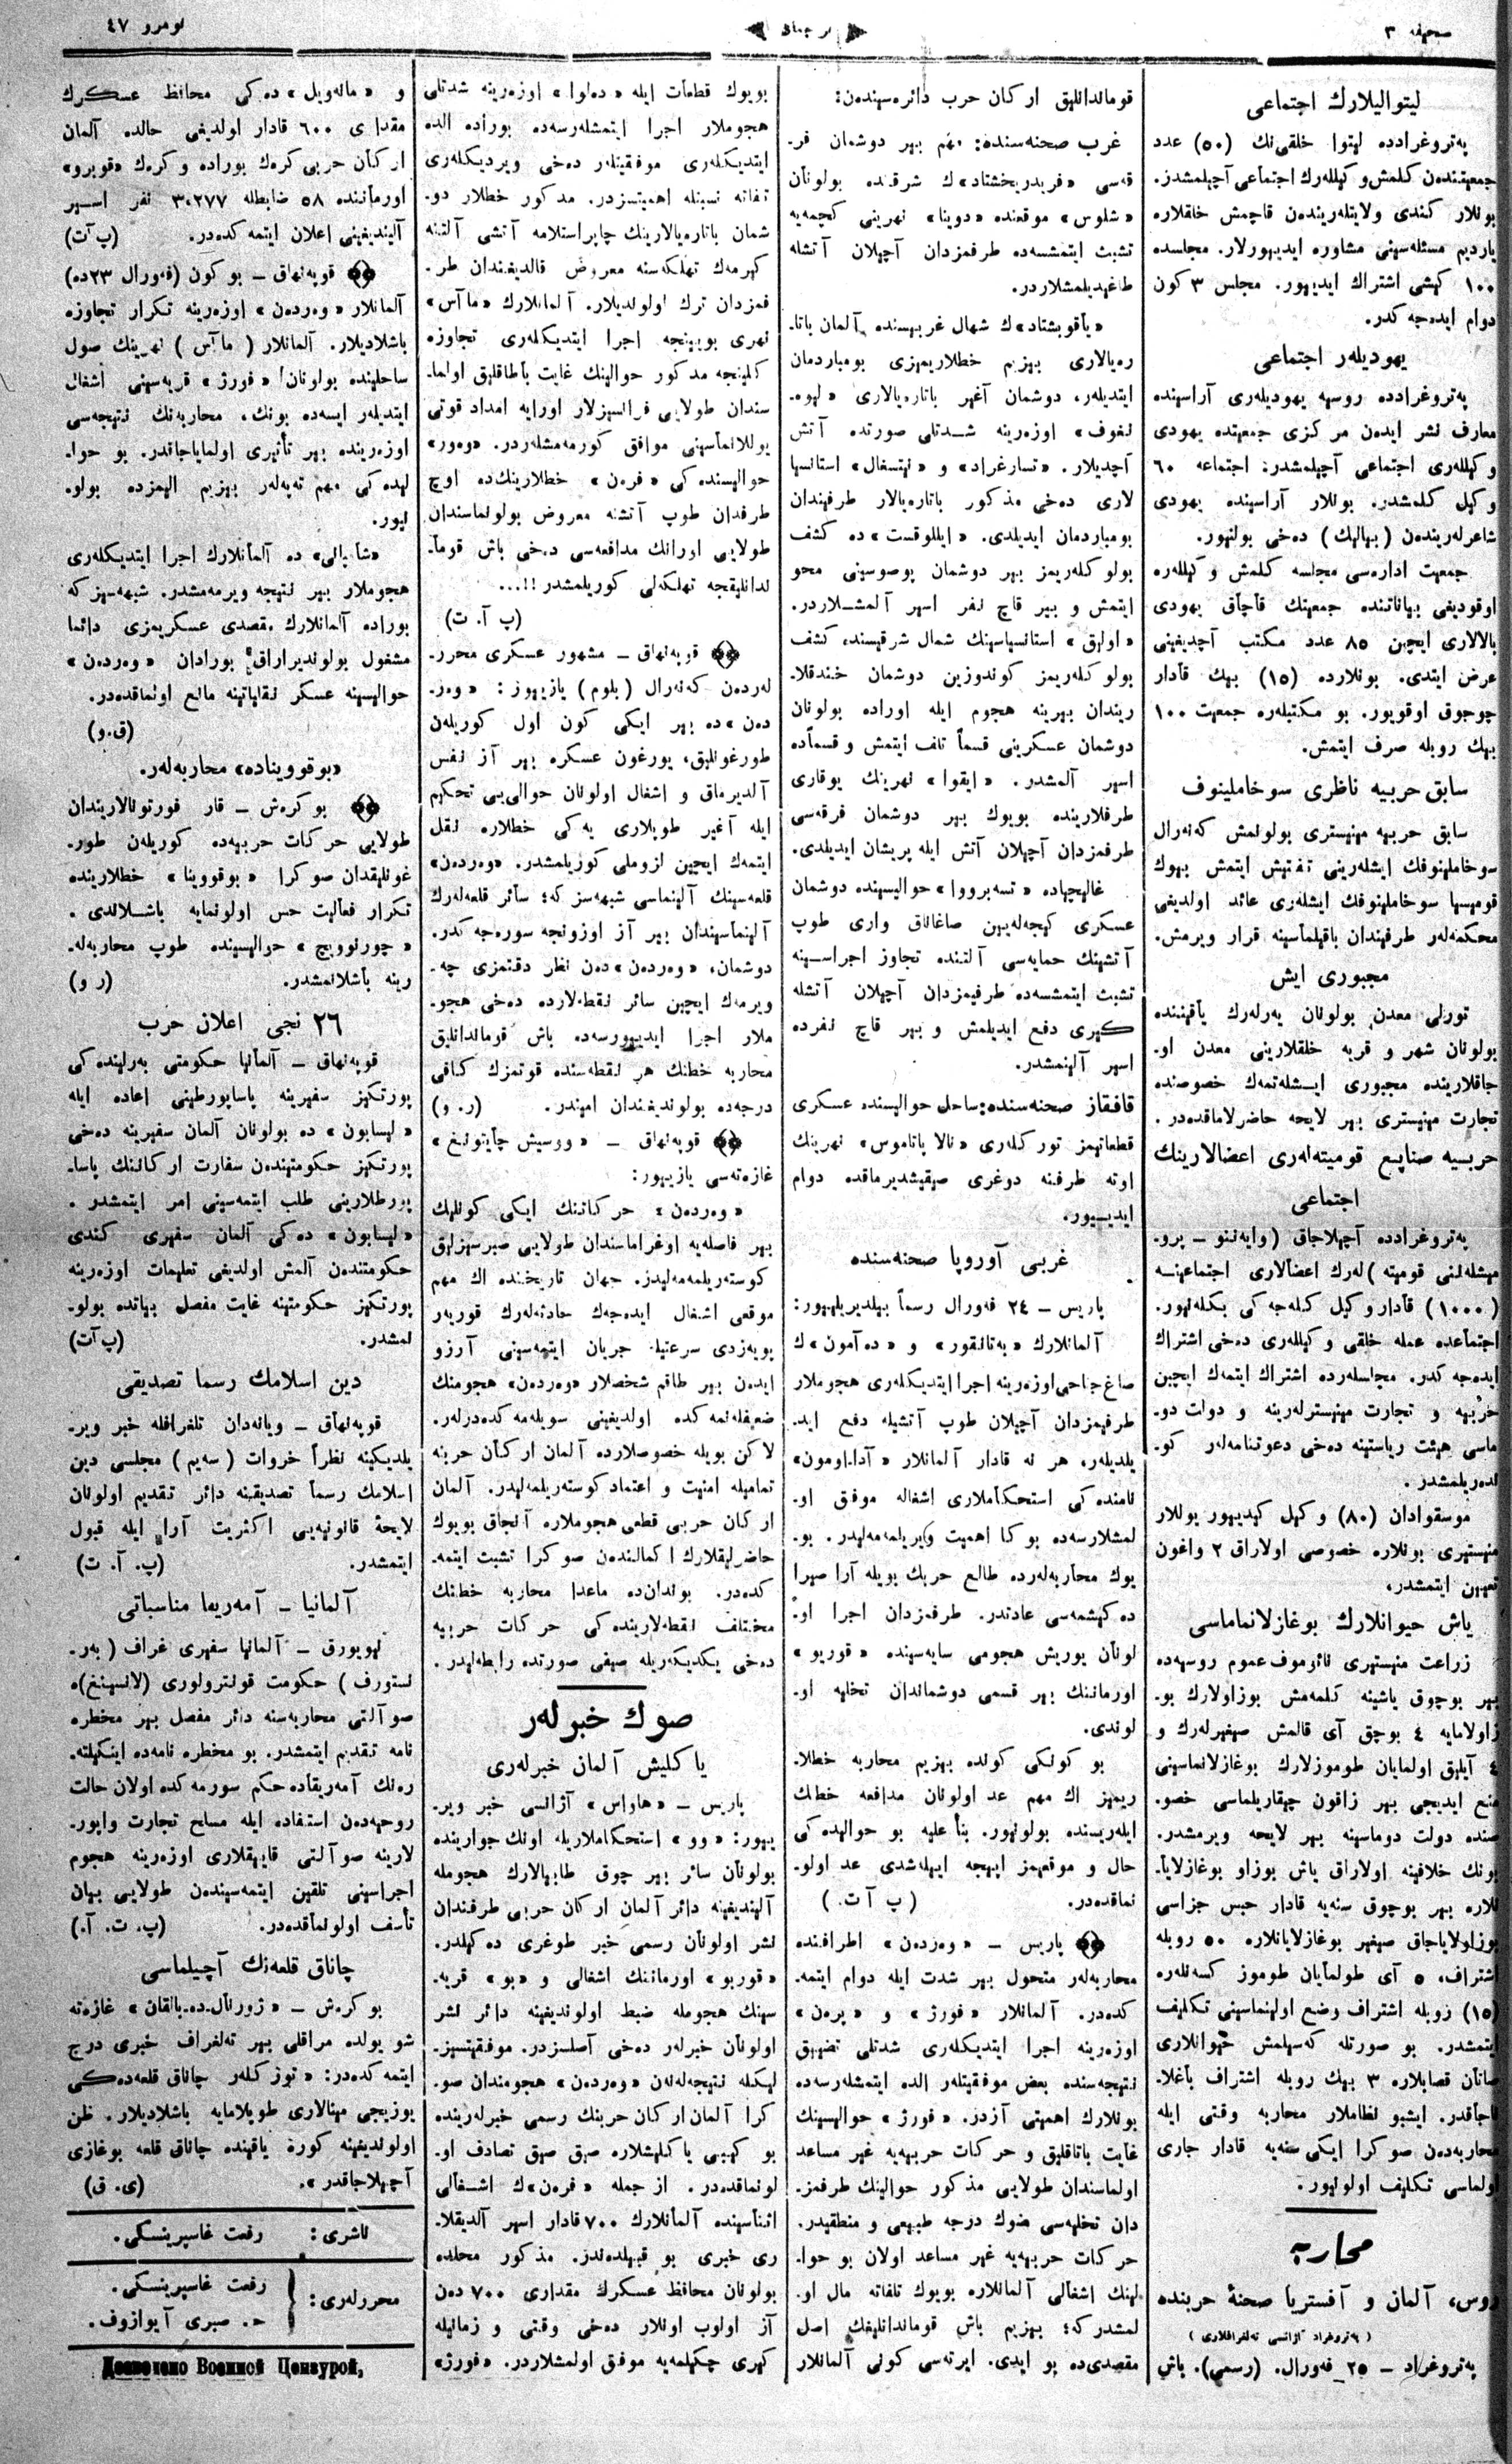 صحیفه ٣
ترجمان
نومرو ٤٧
لیتوالیلارك اجتماعی
پەتروغرادده لیتوا خلقی‌نك (٥٠) عدد
جمعیتندن كلمش وكیللەرك اجتماعی آچیلمشدر.
بونلار كندی ولایتلەریندن قاچمش خلقلاره
یاردیم مسئله‌سینی مشاوره ایدییورلار. مجلسده
١٠٠ كیشی اشتراك ایدییور. مجلس ٣ كون
دوام ایده‌جه كدر.
یهودیلەر اجتماعی
پەتروغرادده روسیه یهودیلەری آراسینده
معارف نشر ایدن مركزی جمعیتده یهودی
وكیللەری اجتماعی آچیلمشدر: اجتماعه ٦٠
وكیل كلمشدر. بونلار آراسینده یهودی
شاعرلەریندن (بیالیك) ده‌خی بولنیور.
جمعیت اداره‌سی مجلسه كلمش وكیللەره
اوقودیغی بیاناتنده جمعیتك قاچاق یهودی
بالالاری ایچین ٨٥ عدد مكتب آچدیغینی
عرض ایتدی. بونلارده (١٥) بیك قادار
چوجوق اوقویور. بو مكتبلەره جمعیت ١٠٠
بیك روبله صرف ایتمش.
سابق حربیه ناظری سوخاملینوف
سابق حربیه مینیستری بولونمش كەنەرال
سوخاملینوفك ایشلەرینی تفتیش ایتمش بیوك
قومیسیا سوخاملینوفك ایشلەری عائد اولدیغی
محكمه‌لەر طرفیندان باقیلماسینه قرار ویرمش.
مجبوری ایش
تورلی معدن بولونان یەرلەرك یاقیننده
بولونان شهر و قریه خلقلارینی معدن او-
جاقلارینده مجبوری ایشلەتمەك خصوصنده
تجارت مینیستری بیر لایحه حاضرلاماقده‌در.
حربیه صنایع قومیته‌لەری اعضالارینك
اجتماعی
پەتروغرادده آچیلاجاق (وایەننو - پرو-
میشلەننی قومیته) لەرك اعضالاری اجتماعینه
(١٠٠٠) قادار وكیل كله‌جه كی بكلەنیور.
اجتماعده عمله خلقی وكیللەری ده‌خی اشتراك
ایده‌جه كدر. مجلسلەرده اشتراك ایتمەك ایچین
حربیه و تجارت مینیسترلەرینه و دولت دو-
ماسی هیئت ریاستینه ده‌خی دعوتنامه‌لەر كو-
ندەریلمشدر.
موسقوادان (٨٠) وكیل كیدییور بونلار
منیستیری بونلاره خصوصی اولاراق ٢ واغون
تعیین ایتمشدر.
یاش حیوانلارك بوغازلانماماسی
زراعت منیستیری نائوموف عموم روسیه‌ده
بیر بوچوق یاشینه كلمه‌مش بوزاولارك بو-
زاولامایه ٤ بوچق آی قالمش صیغیرلەرك و
٤ آیلیق اولمایان طوموزلارك بوغازلانماسینی
منع ایدیجی بیر زاقون چیقاریلماسی خصو-
صنده دولت دوماسینه بیر لایحه ویرمشدر.
بونك خلافینه اولاراق یاش بوزاو بوغازلایا-
نلاره بیر بوچوق سنه‌یه قادار حبس جزاسی
بوزاولایاجاق صیغیر بوغازلایانلاره ٥٠ روبله
اشتراف، ٥ آی طولمایان طوموز كسەنلەره
(١٥) روبله اشتراف وضع اولینماسینی تكلیف
ایتمشدر. بو صورتله كەسیلمش حیوانلاری
صاتان قصابلاره ٣ بیك روبله اشتراف باغلا-
ناجاقدر. ایشبو نظاملار محاربه وقتی ایله
محاربه‌دن صوكرا ایكی سنه‌یه قادار جاری
اولماسی تكلیف اولونیور.
محاربه
روس، آلمان و آفستریا صحنۀ حربنده
(پەتروغراد آژانسی تەلغرافلاری)
پەتروغراد - ٢٥ فەورال. (رسمی). باش
قوماندانلیق اركان حرب دائره‌سیندەن:
غرب صحنه‌سنده: مهم بیر دوشمان فر-
قه‌سی «فریدریخشتاد»ك شرقنده بولونان
«شلوس» موقعنده «دوینا» نهرینی كچمه‌یه
تشبث ایتمشسه‌ده طرفمزدان آچیلان آتشله
طاغیدیلمشلاردر.
«یاقوبشتاد»ك شمال غربیسنده آلمان باتا-
ره‌یالاری بیزیم خطلاریمیزی بومباردمان
ایتدیلەر، دوشمان آغیر باتاره‌یالاری «لیوه-
نغوف» اوزەرینه شدتلی صورتده آتش
آچدیلار. «تسارغراد» و «نیتسغال» استانسیا
لاری ده‌خی مذكور باتاره‌یالار طرفیندان
بومباردمان ایدیلدی. «ایللوقست»ده كشف
بولوكلەریمز بیر دوشمان پوصوسینی محو
ایتمش و بیر قاچ نفر اسیر آلمشلاردر.
«اولیق» استانسیاسینك شمال شرقیسنده، كشف
بولوكلەریمز كوندوزین دوشمان خندقلا-
ریندان بیرینه هجوم ایله اوراده بولونان
دوشمان عسكرینی قسماً تلف ایتمش و قسماًده
اسیر آلمشدر. «ایقوا» نهرینك یوقاری
طرفلارینده بویوك بیر دوشمان فرقه‌سی
طرفمزدان آچیلان آتش ایله پریشان ایدیلدی.
غالیچیاده «تسەبرووا» حوالیسینده دوشمان
عسكری كیجه‌لەیین صاغاناق واری طوپ
آتشینك حمایه‌سی آلتنده تجاوز اجراسینه
تشبث ایتمشسه‌ده طرفیمزدان آچیلان آتشله
كیری دفع ایدیلمش و بیر قاچ نفرده
اسیر آلینمشدر.
قافقاز صحنه‌سنده: ساحل حوالیسنده عسكری
قطعاتیمز توركلەری «نالا پاتاموس» نهرینك
اوته طرفنه دوغری صیقیشدیرماقده دوام
ایدییور.
غربی آوروپا صحنه‌سنده
پاریس - ٢٤ فەورال رسماً بیلدیریلییور:
آلمانلارك «بەتانقور» و «دەآمون»ك
صاغ جناحی اوزەرینه اجرا ایتدیكلەری هجوملار
طرفیمزدان آچیلان طوپ آتشیله دفع اید-
یلدیلەر، هر نه قادار آلمانلار «آدا-اومون»
نامنده‌كی استحكاملاری اشغاله موفق او-
لمشلارسه‌ده بوكا اهمیت ویریلمه‌مه‌لیدر. بو-
یوك محاربه‌لەرده طالع حربك بویله آرا صیرا
ده‌كیشمه‌سی عادتدر. طرفمزدان اجرا او-
لونان یوریش هجومی سایه‌سینده «قوربو»
اورماننك بیر قسمی دوشماندان تخلیه او-
لوندی.
بو كونكی كونده بیزیم محاربه خطلا-
ریمیز اك مهم عد اولونان مدافعه خطك
ایله‌ریسنده بولونیور. بناً علیه بو حوالیده‌كی
حال و موقعیمز ایپیجه ایپیله‌شدی عد اولو-
نماقده‌در. (پ آ ت.)
پاریس - «وەردەن» اطرافنده
محاربه‌لەر متحول بیر شدت ایله دوام ایتمه-
كده‌در. آلمانلار «فورژ» و «پرەن»
اوزەرینه اجرا ایتدیكلەری شدتلی تضییق
نتیجه‌سنده بعض موفقیتلەر الده ایتمشلەرسه‌ده
بونلارك اهمیتی آزدر. «فورژ» حوالیسینك
غایت باتاقلیق و حركات حربیه‌یه غیر مساعد
اولماسندان طولایی مذكور حوالینك طرفمز-
دان تخلیه‌سی صوك درجه طبیعی و منطقیدر.
حركات حربیه‌یه غیر مساعد اولان بو حوا-
لینك اشغالی آلمانلاره بویوك تلفاته مال او-
لمشدر كه؛ بیزیم باش قوماندانلیغك اصل
مقصدی‌ده بو ایدی. ایرته‌سی كونی آلمانلار
بویوك قطعات ایله «دەلوا» اوزەرینه شدتلی
هجوملار اجرا ایتمشلەرسه‌ده بوراده الده
ایتدیكلەری موفقیتلەر ده‌خی ویردیكلەری
تلفاته نسبتله اهمیتسزدر. مذكور خطلار دو-
شمان باتاره‌یالارینك چاپراستلامه آتشی آلتینه
كیرمەك تهلكه‌سنه معروض قالدیغندان طر-
فمزدان ترك اولوندیلار. آلمانلارك «ماآس»
نهری بویینجه اجرا ایتدیكلەری تجاوزه
كلینجه مذكور حوالینك غایت باطاقلیق اولما-
سندان طولایی فرانسیزلار اورایه امداد قوتی
یوللانماسینی موافق كورمه‌مشلەردر. «وەور»
حوالیسنده‌كی «فرەن» خطلارینك‌ده اوچ
طرفدان طوپ آتشنه معروض بولونماسندان
طولایی اورانك مدافعه‌سی ده‌خی باش قوما-
ندانلیقجه تهلكه‌لی كوریلمشدر!!...
(پ آ. ت)
قوپەنهاق - مشهور عسكری محرر-
لەردن كەنەرال (بلوم) یازییور: «وەر-
دەن»ده بیر ایكی كون اول كوریلەن
طورغونلیق، یورغون عسكره بیر آز نفس
آلدیرماق و اشغال اولونان حوالی‌یی تحكیم
ایله آغیر طوپلاری یه‌كی خطلاره نقل
ایتمەك ایچین لزوملی كوریلمشدر. «وەردەن»
قلعه‌سینك آلینماسی شبهه‌سز كه؛ سائر قلعه‌لەرك
آلینماسیندان بیر آز اوزونجه سوره‌جه كدر.
دوشمان، «وەردەن»دن نظر دقتمزی چه-
ویرمەك ایچین سائر نقطه‌لارده ده‌خی هجو-
ملار اجرا ایدییورسه‌ده باش قوماندانلیق
محاربه خطنك هر نقطه‌سنده قوتمزك كافی
درجه‌ده بولوندیغندان امیندر. (ر. و)
قوپەنهاق - «ووسیش چایتونغ»
غازەته‌سی یازییور:
«وەردەن» حركاتنك ایكی كونلیك
بیر فاصله‌یه اوغراماسندان طولایی صبرسیزلیق
كوستەریلمه‌مه‌لیدر. جهان تاریخنده اك مهم
موقعی اشغال ایده‌جەك حادثه‌لەرك قوریەر
پویەزدی سرعتیله جریان ایتمه‌سینی آرزو
ایدەن بیر طاقم شخصلار «وەردەن» هجومنك
ضعیفله‌نمه‌كده اولدیغینی سویله‌مه‌كده‌درلەر.
لاكن بویله خصوصلارده آلمان اركان حربنه
تمامیله امنیت و اعتماد كوستەریلمه‌لیدر. آلمان
اركان حربی قطعی هجوملاره آنجاق بویوك
حاضرلیقلارك اكمالندەن صوكرا تشبث ایتمه-
كده‌در. بوندان‌ده ماعدا محاربه خطنك
مختلف نقطه‌لارینده‌كی حركات حربیه
ده‌خی یكدیكەریله صیقی صورتده رابطه‌لیدر.
صوك خبرلەر
یاكلیش آلمان خبرلەری
پاریس - «هاواس» آژانسی خبر ویر-
ییور: «وو» استحكاملاریله اونك جوارینده
بولونان سائر بیر چوق طابیالارك هجومله
آلیندیغینه دائر آلمان اركان حربی طرفندان
نشر اولونان رسمی خبر طوغری ده‌كیلدر.
«قوربو» اورماننك اشغالی و «بو» قریه-
سینك هجومله ضبط اولوندیغینه دائر نشر
اولونان خبرلەر ده‌خی آصلسزدر. موفقیتسیز-
لیكله نتیجه‌لەنەن «وەردەن» هجومندان صو-
كرا آلمان اركان حربنك رسمی خبرلەرینده
بو كیبی یاكلیشلاره صیق صیق تصادف او-
لونماقده‌در. از جمله «فرەن»ك اشغالی
اثناسینده آلمانلارك ٧٠٠ قادار اسیر آلدیقلا-
ری خبری بو قبیلدەندر. مذكور محلده
بولونان محافظ عسكرك مقداری ٧٠٠ دەن
آز اولوب اونلار ده‌خی وقتی و زمانیله
كیری چكیلمه‌یه موفق اولمشلاردر. «فورژ»
و «مانەویل» ده‌كی محافظ عسكرك
مقداری ٦٠٠ قادار اولدیغی حالده آلمان
اركان حربی كرەك بوراده و كرەك «قوبرو»
اورماننده ٥٨ ضابطله ٣،٢٧٧ نفر اسیر
آلیندیغینی اعلان ایتمه‌كده‌در. (پ آ ت)
قوپەنهاق - بو كون (فەورال ٢٣ده)
آلمانلار «وەردەن» اوزەرینه تكرار تجاوزه
باشلادیلار. آلمانلار (ماآس) نهرینك صول
ساحلینده بولونان «فورژ» قریه‌سینی اشغال
ایتدیلەر ایسه‌ده بونك، محاربه‌نك نتیجه‌سی
اوزەرینده بیر تأثیری اولمایاجاقدر. بو حوا-
لیده‌كی مهم تەپه‌لەر بیزیم الیمزده بولو-
نیور.
«شامپانی» ده آلمانلارك اجرا ایتدیكلەری
هجوملار بیر نتیجه ویرمه‌مشدر. شبهه‌سیز كه
بوراده آلمانلارك مقصدی عسكریمزی دائما
مشغول بولوندیراراق بورادان «وەردەن»
حوالیسینه عسكر نقلیاتینه مانع اولماقده‌در.
(ق.و)
«بوقووینا»ده محاربه‌لەر.
بوكرەش - قار فورتونالاریندان
طولایی حركات حربیه‌ده كوریلەن طور-
غونلیقدان صوكرا «بوقووینا» خطلارینده
تكرار فعالیت حس اولونمایه باشلاندی.
«چورنوویچ» حوالیسینده طوپ محاربه‌لە-
رینه باشلانمشدر. (ر و)
٢٦ نجی اعلان حرب
قوپەنهاق - آلمانیا حكومتی بەرلینده‌كی
پورتكیز سفیرینه پاساپورطینی اعاده ایله
«لیسابون» ده بولونان آلمان سفیرینه ده‌خی
پورتكیز حكومتیندەن سفارت اركاننك پاسا-
پورطلارینی طلب ایتمه‌سینی امر ایتمشدر.
«لیسابون» ده‌كی آلمان سفیری كندی
حكومتندەن آلمش اولدیغی تعلیمات اوزەرینه
پورتكیز حكومتینه غایت مفصل بیاننده بولو-
نمشدر. (پ آ ت)
دین اسلامك رسما تصدیقی
قوپەنهاق - ویانه‌دان تلغرافله خبر ویر-
یلدیكینه نظراً خروات (سەیم) مجلسی دین
اسلامك رسماً تصدیقینه دائر تقدیم اولونان
لایحۀ قانونیه‌یی اكثریت آرا ایله قبول
ایتمشدر. (پ. آ. ت)
آلمانیا - آمەریقا مناسباتی
نیویورق - آلمانیا سفیری غراف (بەر-
نستورف) حكومت قونترولوری (لانسینغ)ه
صو آلتی محاربه‌سنه دائر مفصل بیر مخطره
نامه تقدیم ایتمشدر. بو مخطره نامه‌ده اینكیلته-
ره‌نك آمەریقاده حكم سورمه‌كده اولان حالت
روحیه‌دەن استفاده ایله مسلح تجارت واپور-
لارینه صو آلتی قاییقلاری اوزەرینه هجوم
اجراسینی تلقین ایتمه‌سیندەن طولایی بیان
تأسف اولونماقده‌در. (پ. ت. آ.)
چاناق قلعه‌نك آچیلماسی
بوكرەش - «ژورنال-ده-بالقان» غازەته
شو یولده مراقلی بیر تەلغراف خبری درج
ایتمه‌كده‌در: «توركلەر چاناق قلعه‌ده‌كی
یوزیجی مینالاری طوپلامایه باشلادیلار. ظن
اولوندیغینه كوره یاقینده چاناق قلعه بوغازی
آچیلاجاقدر». (ی. ق)
ناشری: رفعت غاسپرینسكی.
محررلەری: رفعت غاسپرینسكی.
ح. صبری آیوازوف.
Дозволено Военной Цензурой,